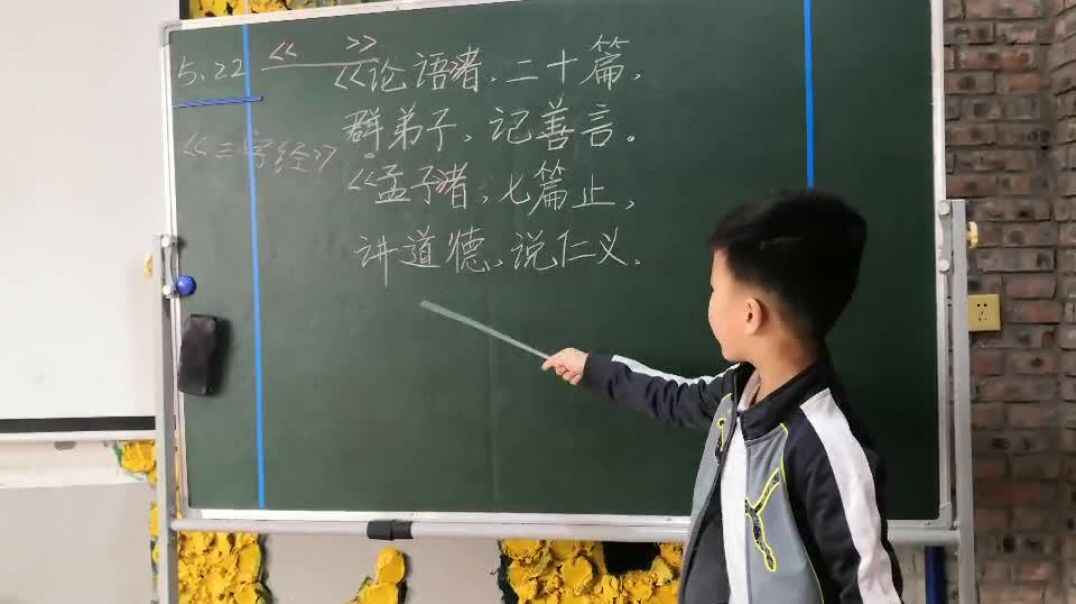 5.22
《 》
《论语》者,二十篇,
群弟子,记善言。
《三字经》
《孟子》者,七篇止,
讲道德,说仁义,